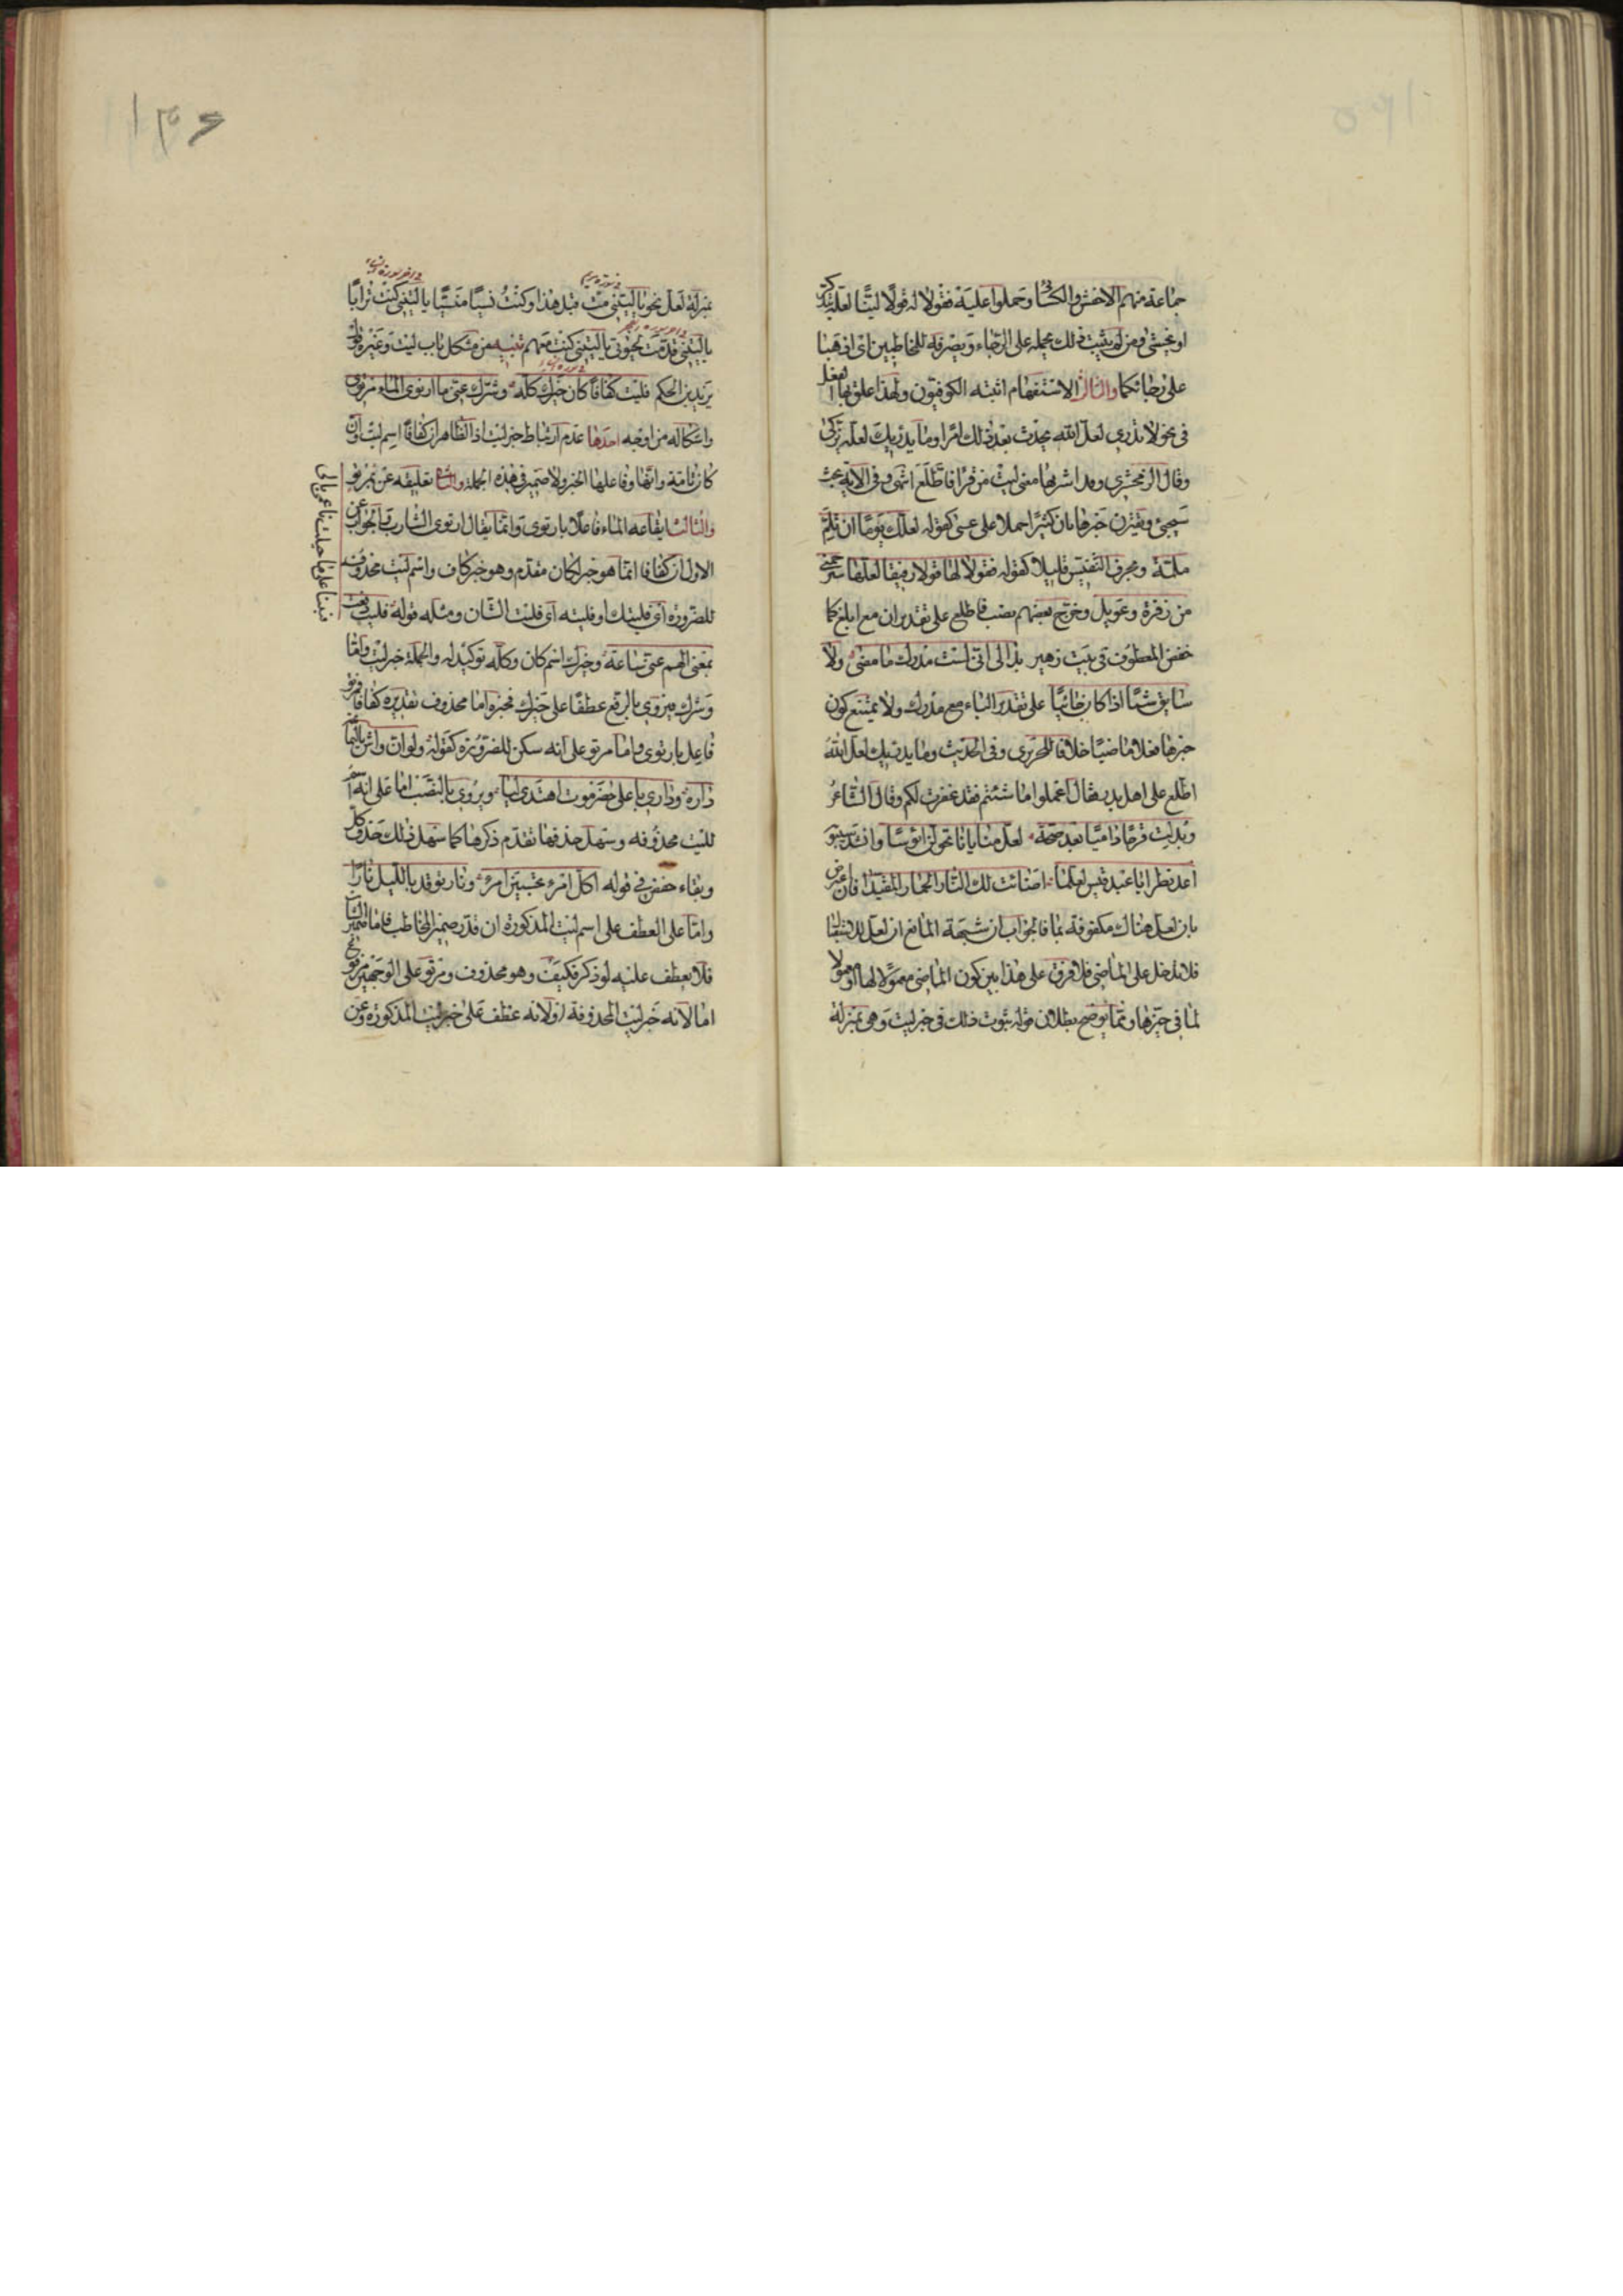 جماعة منهم الاخفش والكسائى وحملوا عليه فقولا له قولا لينا لعله يتذكر
او يخشى ومن لم يثبت ذلك يحمله على الرجاء ويصرفه للمخاطبين اى اذهبا
على رجائكما والثالث الاستفهام اثبته الكوفيون ولهذا علق بها الفعل
فى نحو لا تدرى لعل الله يحدث بعد ذلك امرا وما يدريك لعله يزكى
وقال الزمخشرى وقد اشربها معنى ليت من قرا فاطلع انتهى وفى الاية بحث
سيجئ ويقترن خبرها بان كثيرا حملا على عسى كقوله لعلك يوما ان تلم
ملمة وبحرف التنفيس قليلا كقوله فقولا لها قولا رفيقا لعلها سترحمنى
من زفرة وعويل وخرج بعضهم نصب فاطلع على تقدير ان مع ابلغ كما
خفض المعطوف فى بيت زهير بدا لى انى لست مدرك ما مضى ولا
سابق شيئا اذا كان جائيا على تقدير الباء مع مدرك ولا يمتنع كون
خبرها فعلا ماضيا خلافا للحريرى وفى الحديث وما يدريك لعل الله
اطلع على اهل بدر فقال اعملوا ما شئتم فقد غفرت لكم وقال الشاعر
وبدلت قرحا داميا بعد صحة لعل منايانا تحولن ابؤسا وانشد سيبويه
اعد نظرا يا عبد قيس لعلما اضائت لك النار الحمار المقيدا فان اعترض
بان لعل هناك مكفوفة بما فالجواب ان شبهة المانع ان لعل للاستقبال
فلا تدخل على الماضى فلا فرق على هذا بين كون الماضى معمولا لها او معمولا
لما فى حيزها ومما يوضح بطلان قوله ثبوت ذلك فى خبر ليت وهى بمنزلة
بمنزلة لعل نحو يا ليتنى مت قبل هذا وكنت نسيا منسيا يا ليتنى كنت ترابا
يا ليتنى قدمت لحيوتى يا ليتنى كنت معهم تنبيه من مشكل باب ليت وغيره قول
يزيد بن الحكم فليت كفافا كان خيرك كله وشرك عنى ما ارتوى الماء مرتوى
واشكاله من اوجه احدها عدم ارتباط خبر ليت اذ الظاهر ان كفافا اسم ليت وان
كان تامة وانها وفاعلها الخبر ولا ضمير فى هذه الجملة والثانى تعليقه عن بمرتو
والثالث ايقاعه الماء فاعلا بارتوى وانما يقال ارتوى الشارب والجواب عن
الاول ان كفافا انما هو خبر لكان مقدم وهو خبر كاف واسم ليت محذوف
للضرورة اى فليتك او فليته اى فليت الشان ومثله قوله فليت دفعت
الهم عنى ساعة وخيرك اسم كان وكله توكيد له والجملة خبر ليت واما
وشرك فيروى بالرفع عطفا على خيرك فخبره اما محذوف تقديره كفافا فمرتو
فاعل بارتوى واما مرتو على انه سكن للضرورة كقوله ولو ان واش باليمامة
داره ودارى باعلى حضرموت اهتدى ليا ويروى بالنصب اما على انه اسم
لليت محذوفه وسهل حذفها تقدم ذكرها كما سهل ذلك حذف كل
وبقاء خفض فى قوله اكل امرء تحسبين امرء ونار توقد بالليل نارا
واما على العطف على اسم ليت المذكورة ان قدر ضمير المخاطب فاما ضمير الشان
فلا يعطف عليه لو ذكر فكيف وهو محذوف ومرتو على الوجهين مرفوع
اما لانه خبر ليت المحذوفة او لانه عطف على خبر ليت المذكورة وعن